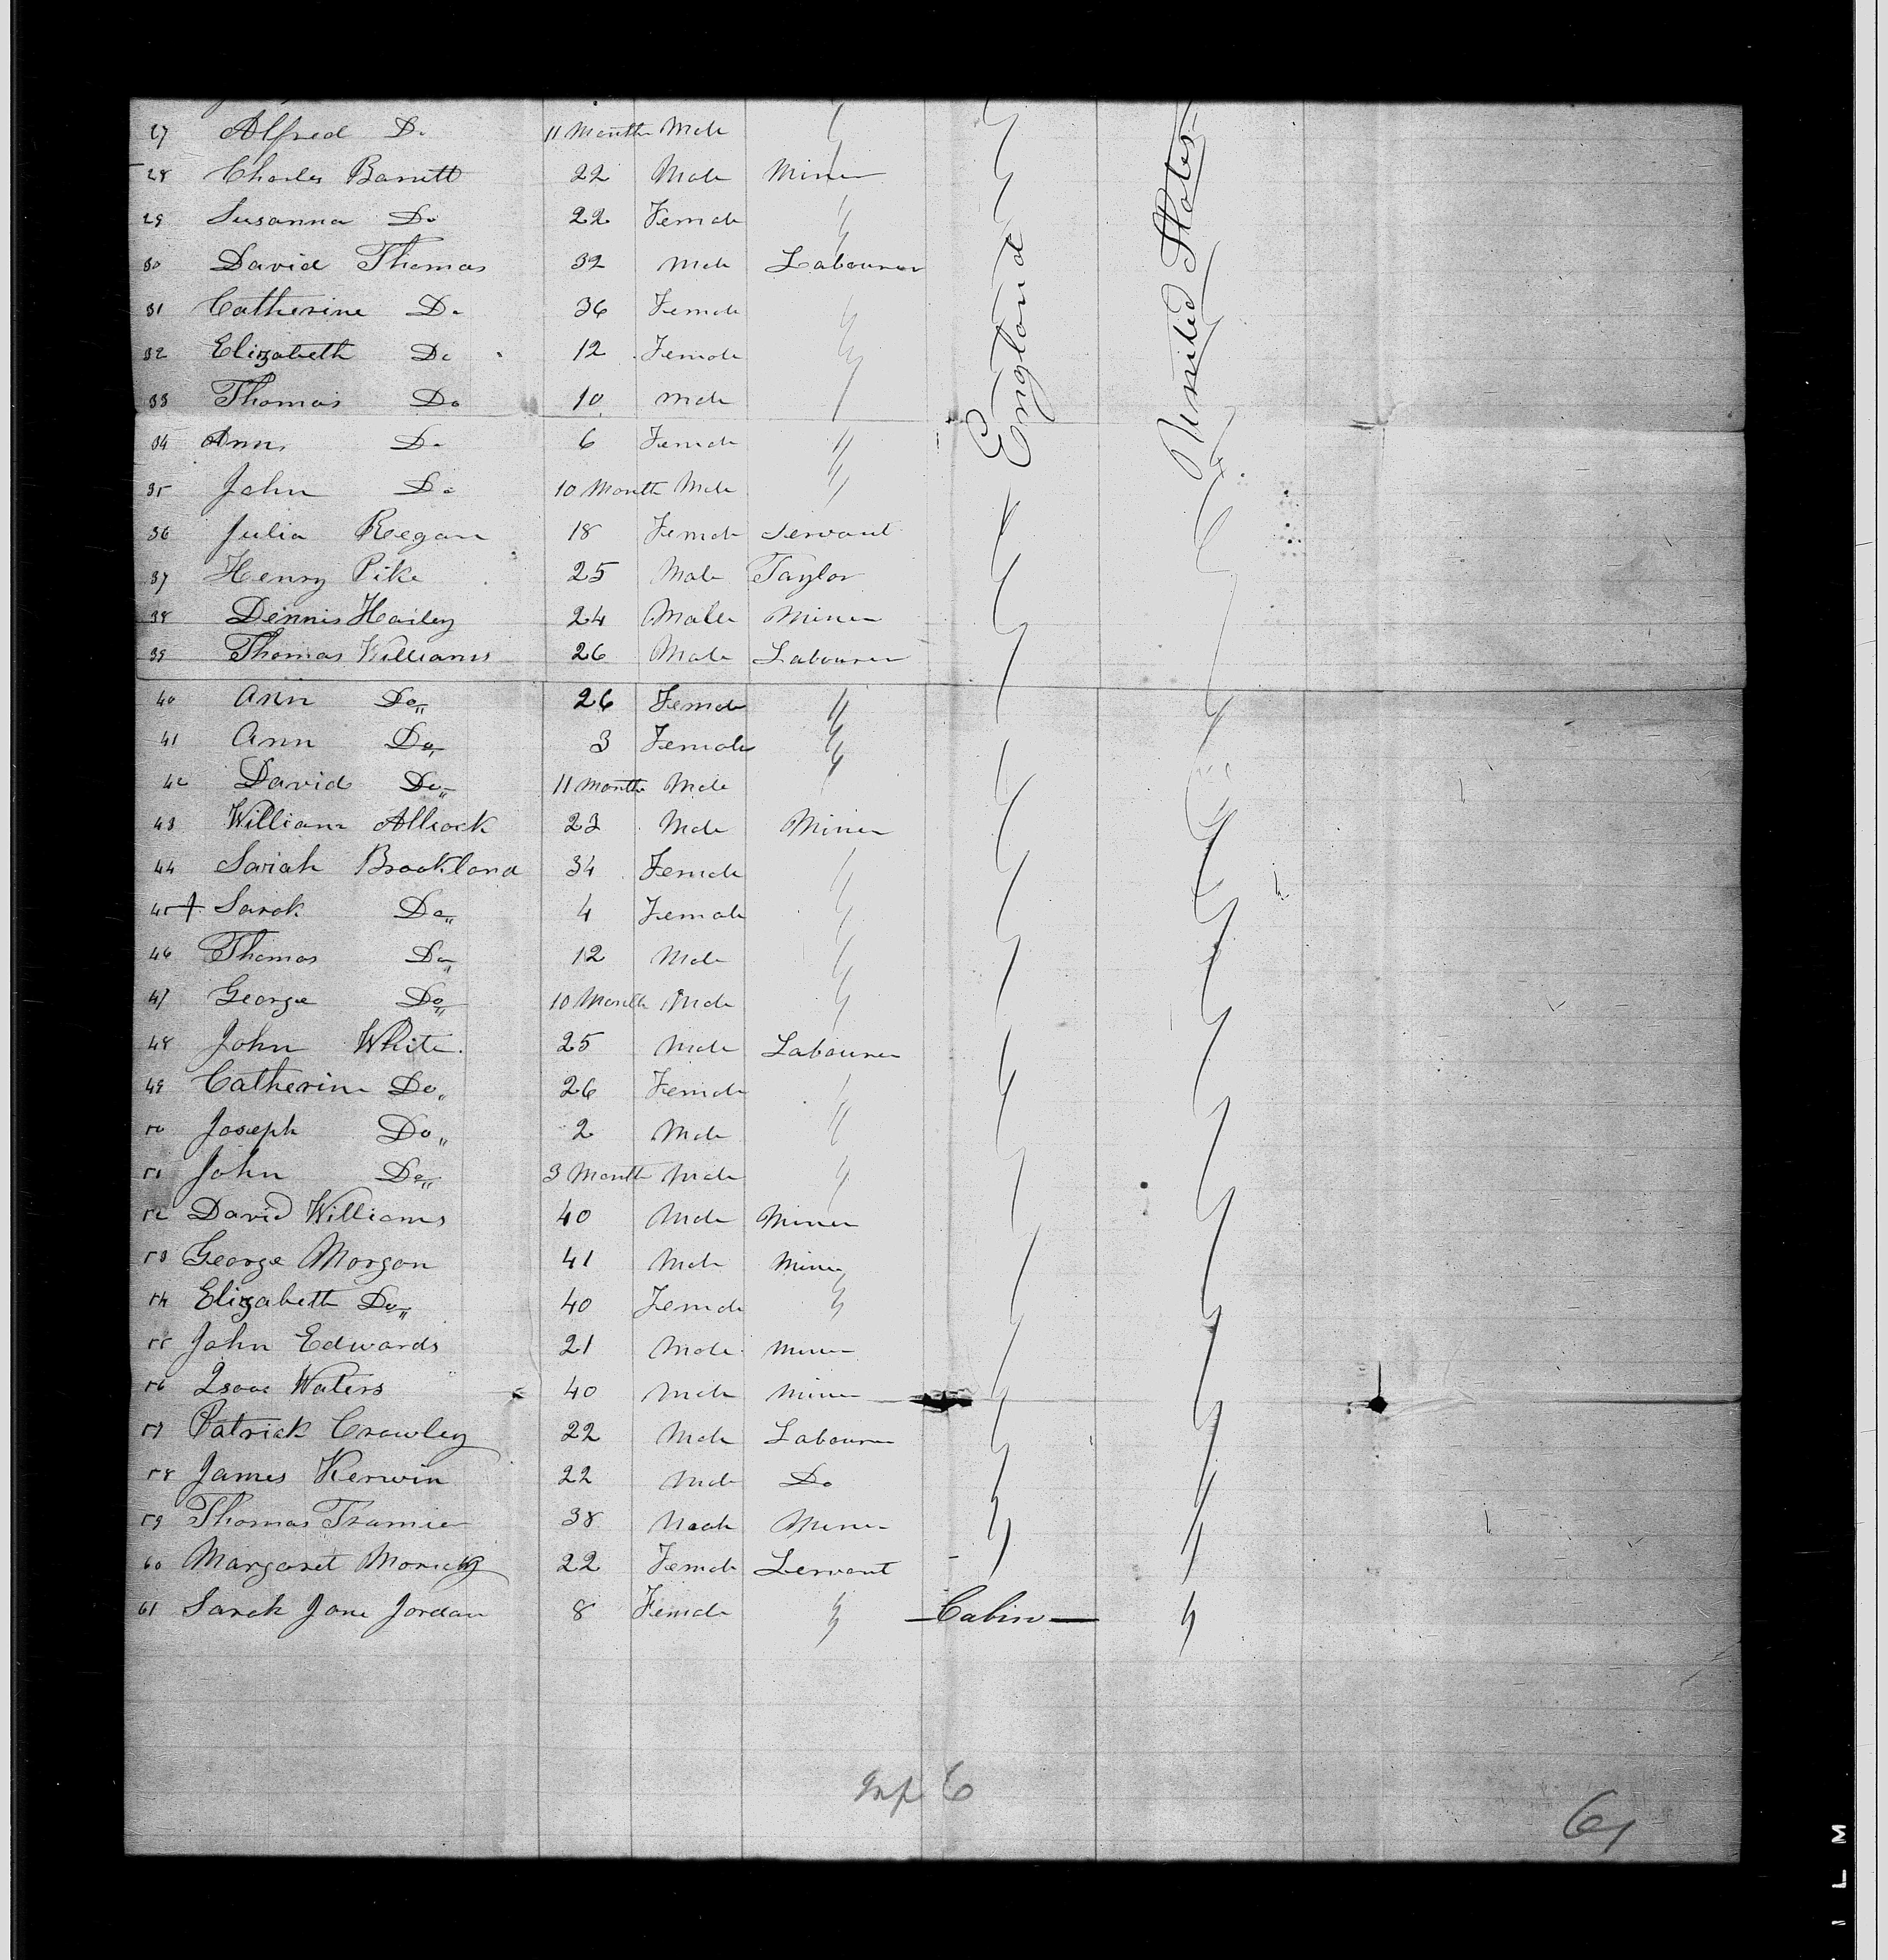 27 Alfred Do 11 Months Male
28 Charles Barrett 22 Male Miner
29 Susanna Do 22 Female
30 David Thomas 32 Male Labourer
31 Catherine Do 36 Female
32 Elizabeth Do 12 Female
33 Thomas Do 10 Male
34 Ann Do 6 Female
35 John Do 10 Month Male
36 Julia Regan 18 Female Servant
37 Henry Pike 25 Male Taylor
38 Dennis Hailey 24 Male Miner
39 Thomas Williams 26 Male Labourer
40 Ann Do 26 Female
41 Ann Do 3 Female
42 David Do 11 Months Male
43 William Allcock 23 Male Miner
44 Sariah Brookland 34 Female
45 + Sarah Do 4 Female
46 Thomas Do 12 Male
47 George Do 10 Month Male
48 John White 25 Male Labourer
49 Catherine Do 26 Female
50 Joseph Do 2 Male
51 John Do 3 Month Male
52 David Williams 40 Male Miner
53 George Morgan 41 Male Miner
54 Elizabeth Do 40 Female
55 John Edwards 21 Male Miner
56 Isaac Waters 40 Male Miner
57 Patrick Crowley 22 Male Labourer
58 James Kerwin 22 Male Do
59 Thomas 38 Male Miner
60 Margaret 22 Female Servant
61 Sarah Jane Jordan 8 Female Cabin
England
United States
Inf 6
61